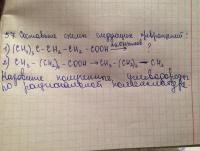 57. Составьте схемы следующих превращений:
1) (CH₃)₃C-CH₂-CH₂-COOH → ?
2) CH₃-(CH₂)₅-COOH → CH₃-(CH₂)₅-CH₃
Назовите полученные углеводороды
по рациональной номенклатуре